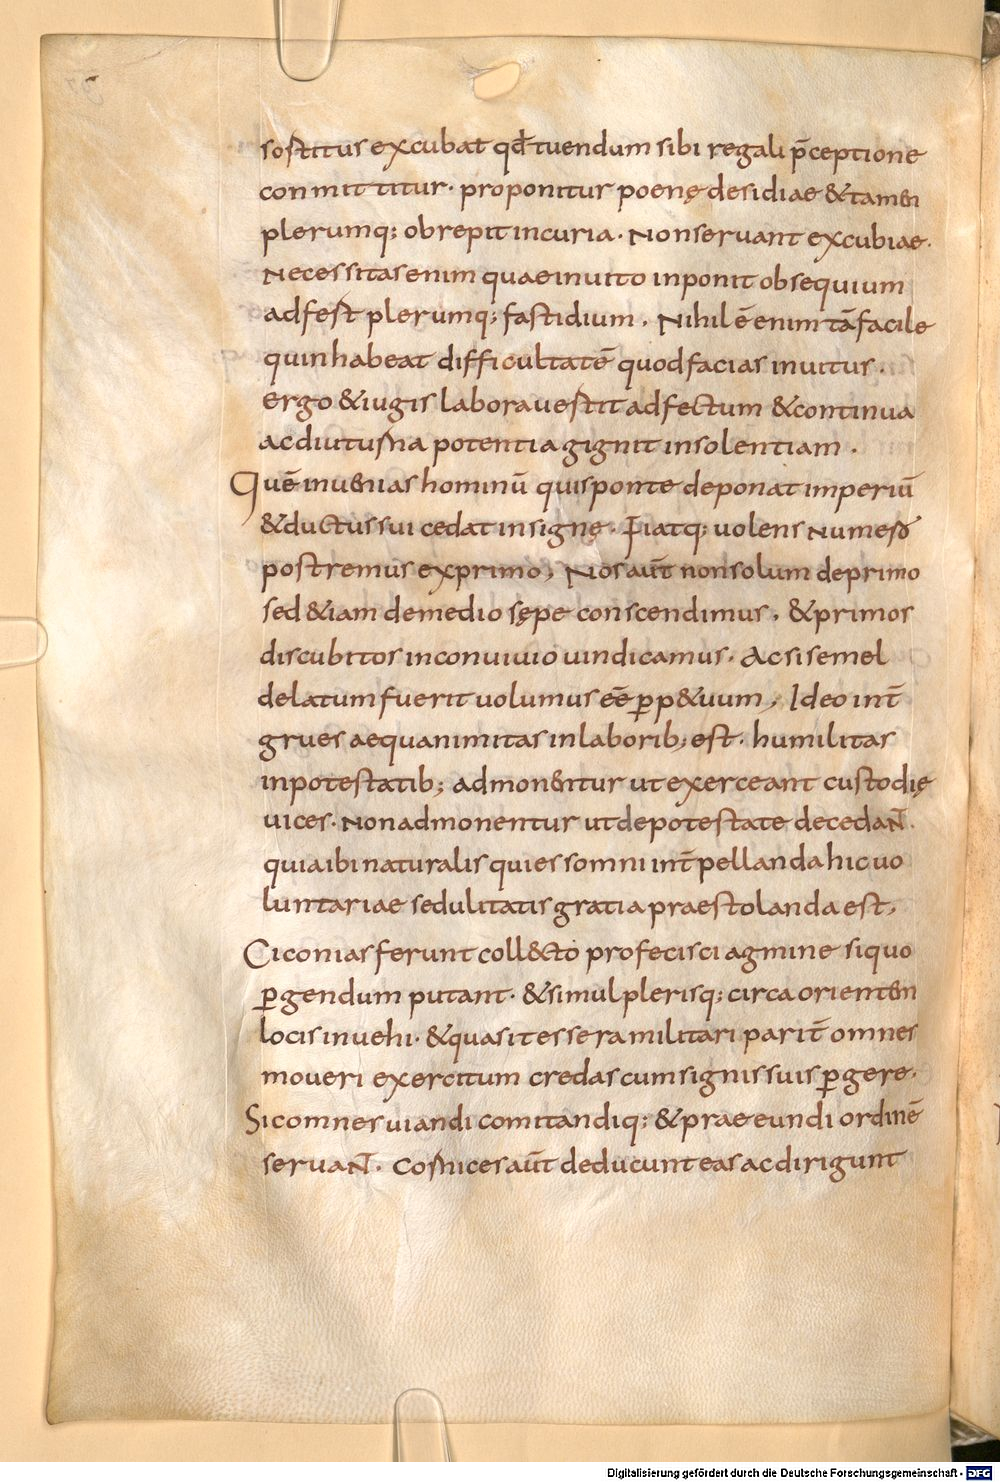 sostitus excubat qđ tuendum sibi regali p̄ceptione
conmittitur · proponitur poenę desidiae & tamen
plerumq; obrepit incuria · Non seruant excubiae ·
Necessitas enim quae inuito inponit obsequium
adfest plerumq; fastidium · Nihil ē enim tā facile
quin habeat difficultatē quod facias inuitus ·
ergo & iugis labor auestit adfectum & continua
ac diuturna potentia gignit insolentiam ·
Quē inuenias hominū qui sponte deponat imperiū
& ductus sui cedat insignę · Fiatq; uolens numero
postremus ex primo, Nos aūt non solum de primo
sed &iam de medio sępe conscendimus, & primos
discubitos in conuiuio uindicamus · Ac si semel
delatum fuerit uolumus eē̄ ꝑp&uum, Ideo int̄
grues aequanimitas in laborib; est · humilitas
in potestatib; admonentur ut exerceant custodię
uices · Non admonentur ut de potestate decedaN̄ ·
quia ibi naturalis quies somni int̄pellanda hic uo
luntariae sedulitatis gratia praestolanda est,
Ciconias ferunt coll&cto profecisci agmine si quo
ꝑgendum putant · & simul plerisq; circa orienten
locis inuehi · & quasi tessera militari parit̄ omnes
moueri exercitum credas cum signis suis ꝑgere ·
Sic omnes uiandi comitandiq; & prae eundi ordinē
seruaN̄ · Cornices aūt deducunt eas ac dirigunt
Digitalisierung gefördert durch die Deutsche Forschungsgemeinschaft - DFG